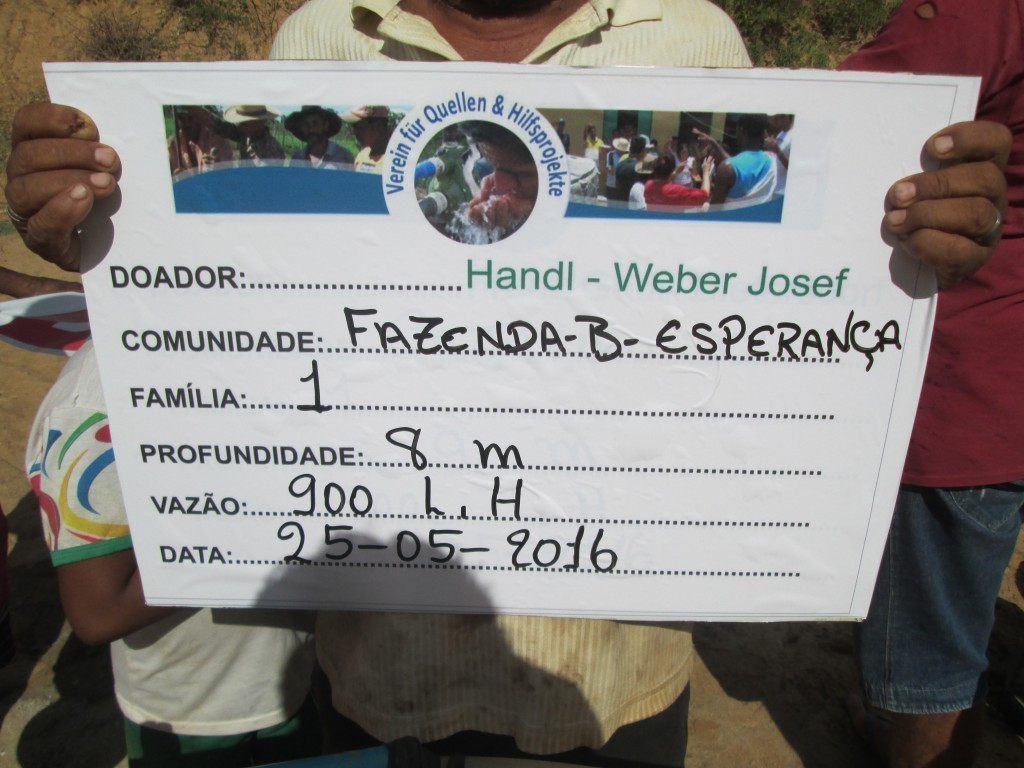 Verein für Quellen & Hilfsprojekte
DOADOR:........................Handl - Weber Josef
COMUNIDADE:...FAZENDA-B-ESPERANÇA
FAMÍLIA:...1
PROFUNDIDADE:...8 m
VAZÃO:...900 L.H
DATA:...25-05-2016